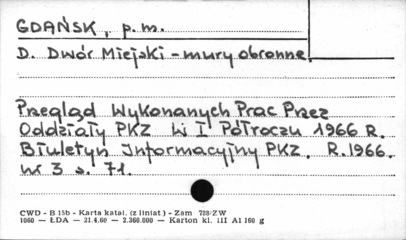 GDAŃSK, p.m.
D. Dwór Miejski - mury obronne.
Przegląd Wykonanych Prac Przez
Oddziały PKZ W I Półroczu 1966 R.
Biuletyn Informacyjny PKZ. R.1966.
nr 3 s. 71.
CWD - B 15b - Karta katal. (z liniat.) - Zam 738/ZW
1060 — ŁDA — 21.4.60 — 2.360.000 — Karton kl. III A1 160 g